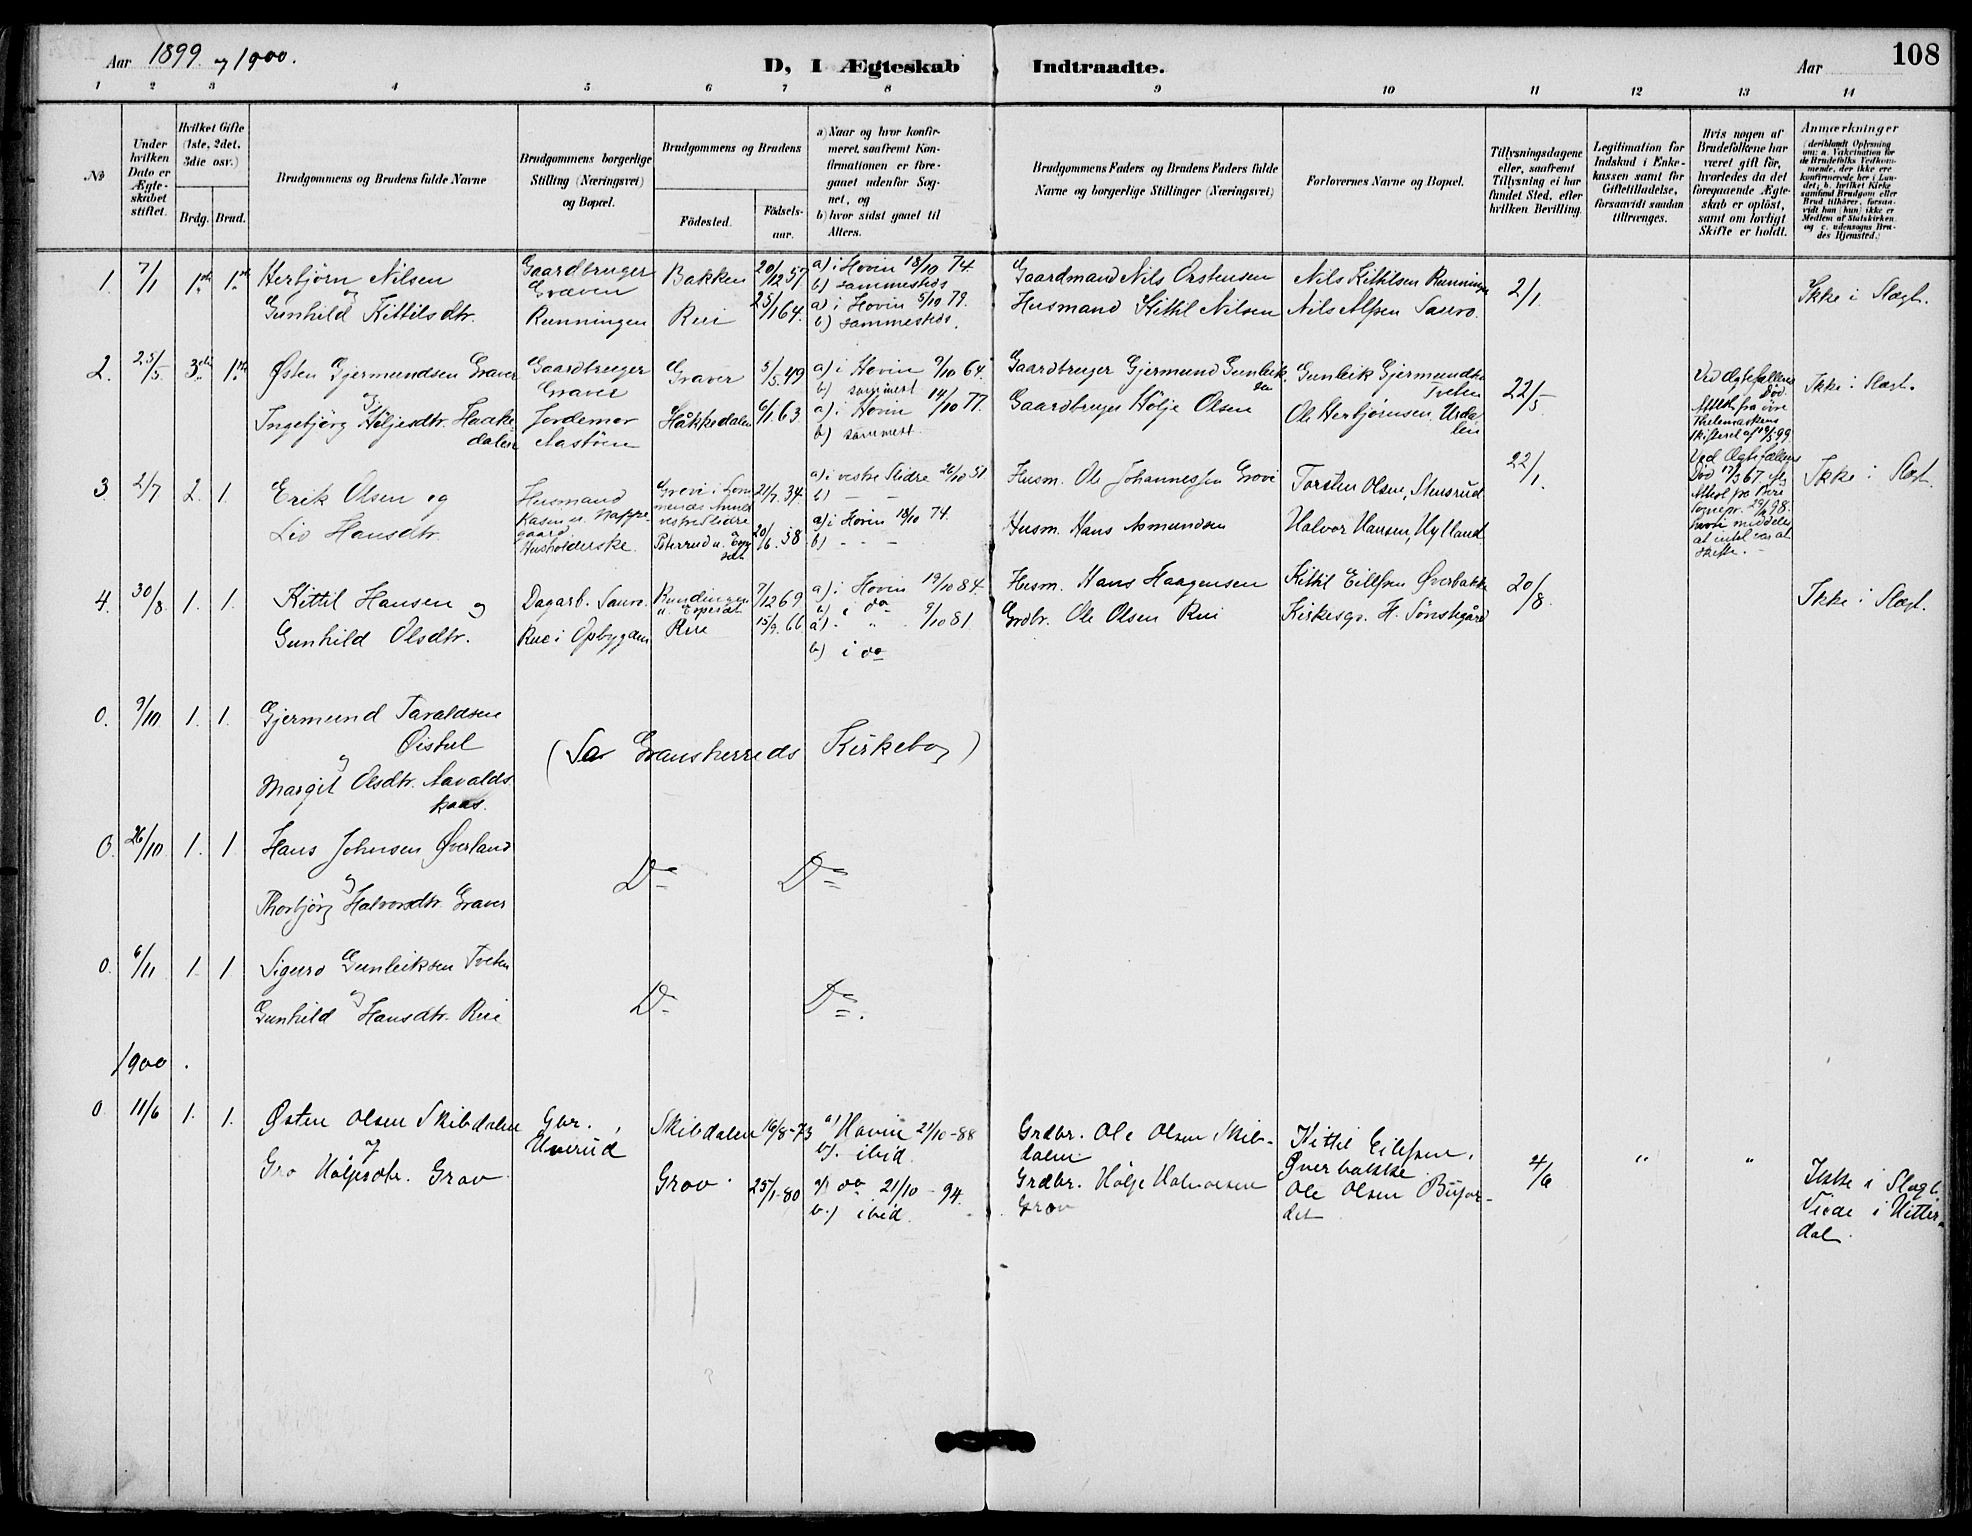 108
Aar 1899 og 1900.
D, I Ægteskab Indtraadte.
Aar
1 2 3 4 5 6 7 8 9 10 11 12 13 14
No
Under hvilken Dato er Ægteskabet stiftet.
Hvilket Gifte (1ste, 2det, 3die osv.)
Brdg. Brud.
Brudgommens og Brudens fulde Navne
Brudgommens borgerlige Stilling (Næringsvei) og Bopæl.
Brudgommens og Brudens
Fødested.
Fødselsaar.
a) Naar og hvor konfirmeret, saafremt Konfirmationen er foregaaet udenfor Sognet, og
b) hvor sidst gaaet til Alters.
Brudgommens Faders og Brudens Faders fulde Navne og borgerlige Stillinger (Næringsvei)
Forlovernes Navne og Bopæl.
Tillysningsdagene eller, saafremt Tillysning ei har fundet Sted, efter hvilken Bevilling.
Legitimation for Indskud i Enkekassen samt for Giftetilladelse, forsaavidt saadan tiltrænges.
Hvis nogen af Brudefolkene har været gift før, hvorledes da det foregaaende Ægteskab er opløst, samt om lovligt Skifte er holdt.
Anmærkninger (deriblandt Oplysning om: a. Vakcination for de Brudefolks Vedkommende, der ikke ere konfirmerede her i Landet; b. hvilket Kirkesamfund Brudgom eller Brud tilhører, forsaavidt han (hun) ikke er Medlem af Statskirken, og c. udensogns Brudes Hjemsted.)
1. 7/1 1ste 1ste Herbjørn Nilsen
og
Gunhild Kittilsdtr.
Gaardbruger
Graven
Runningen
Bakken 20/12 57
Rui 25/1 64.
a) i Hovin 18/10 74.
b) sammesteds
a) i Hovin 5/10 79.
b) sammesteds.
Gaardmand Nils Orstensen
Husmand Kittil Nilsen
Nils Kittilsen Runningen
Nils Alfsen Sauro.
2/1.
Ikke i Slægt.
2. 25/5. 3die 1ste Østen Gjermundsen Graver
og
Ingebjørg Høljesdtr. Haakedalen
Gaardbruger
Graver
Jordemor
Aastöen
Graver 5/5 49
Håkkedalen 6/1 63.
a) i Hovin 9/10 64.
b) sammest
a) i Hovin 14/10 77.
b) sammest.
Gaardbruger Gjermund Gunleiksen
Gaardbruger Hølje Olsen
Gunleik Gjermundsen Tveten
Ole Herbjørnsen Urdalen
22/5
Ved Ægtefællens
Død.
Attest fra øvre
Thelemarkens
Skifteret af 19/5 99.
Ikke i Slægt.
3. 2/7 2. 1. Erik Olsen og
Liv Hansdtr.
Husmand
Husholderske.
21/7. 34.
20/6. 58
a) i vestre Slidre 26/10 51
b) – –
a) i Hovin 18/10 74.
b) – – –
Husm. Ole Johannessen Grovi
Husm. Hans Asmundsen
Torsten Olsen, Stensrud
Halvor Hansen, Hylland
22/1.
Ved Ægtefællens
Død 17/3 67. if.
at intet var at
skifte. –
Ikke i Slægt.
4. 30/8 1. 1. Kittil Hansen og
Gunhild Olsdtr.
Dagarb. Sauro.
Rue i Opbygden
Rundingen
7/12 69
Rue 15/9. 66
a) i Hovin 19/10 84.
b) i do
a) " " 9/10 81
b) i do
Husm. Hans Haagensen
Grdbr. Ole Olsen Rui
Kittil Eilefsen Øverbakke
Kirkesgr. H. Sønstegård
20/8.
Ikke i Slægt.
0. 9/10 1. 1. Gjermund Taraldsen
Øistul
og
Margit Olsdtr. Aavaldskaas.
(Se Gransherreds Kirkebog)
0. 26/10 1. 1 Hans Johnsen Øverland
og
Thorbjørg Halvorsdtr. Graver
Do Do
0. 6/11 1. 1 Sigurd Gunleiksen Tveten
og
Gunhild Hansdtr. Rui
Do Do.
1900.
0 11/6 1. 1. Østen Olsen Skibdalen
og
Gro Høljesdtr. Grov
Gbr.
Uverud
Skibdalen 16/8-73
Grov. 25/1-80
a) Hovin 21/10-88
b). ibid.
a) do 21/10-94.
b.) ibid.
Grdbr. Ole Olsen Skibdalen
Grdbr. Hølje Halvorsen
Grov
Kittil Eilefsen,
Øverbakke
Ole Olsen Bufordet
4/6
" "
Ikke i Slægt.
Viede i Hitterdal.